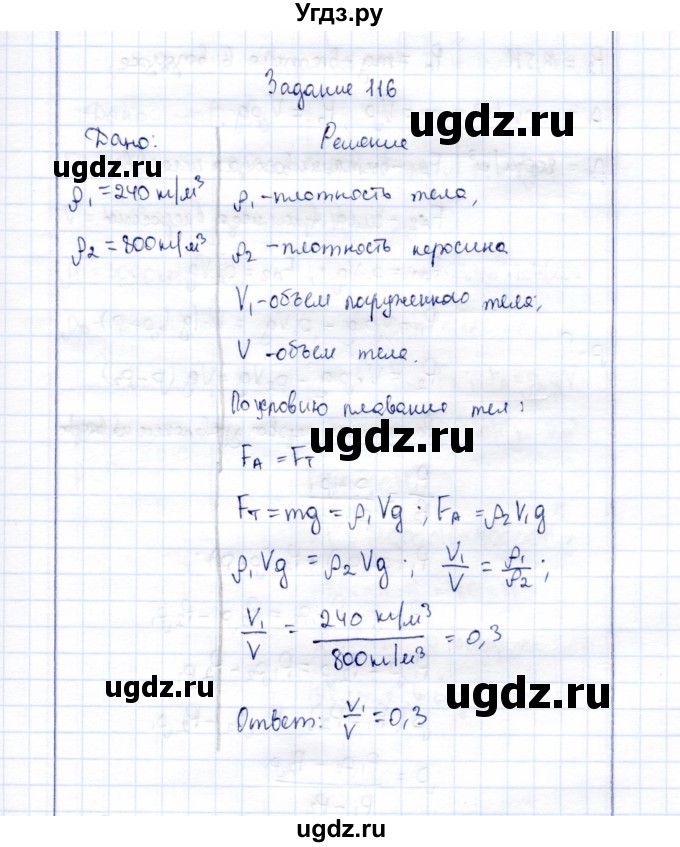 Угдз.ру
Задание 116
ugdz.ru
Дано:
Решение
ugdz.ru
ρ₁ = 240 кг/м³
ρ₁ - плотность тела,
ρ₂ = 800 кг/м³
ρ₂ - плотность керосина
V₁ - объем погруженного тела;
V - объем тела.
По условию плавания тел:
ugdz.ru
F_A = F_T
F_T = mg = ρ₁Vg; F_A = ρ₂V₁g
ρ₁Vg = ρ₂Vg; V₁/V = ρ₁/ρ₂;
V₁/V = 240 кг/м³ / 800 кг/м³ = 0,3
ugdz.ru
ugdz.ru
Ответ: V₁/V = 0,3
ugdz.ru